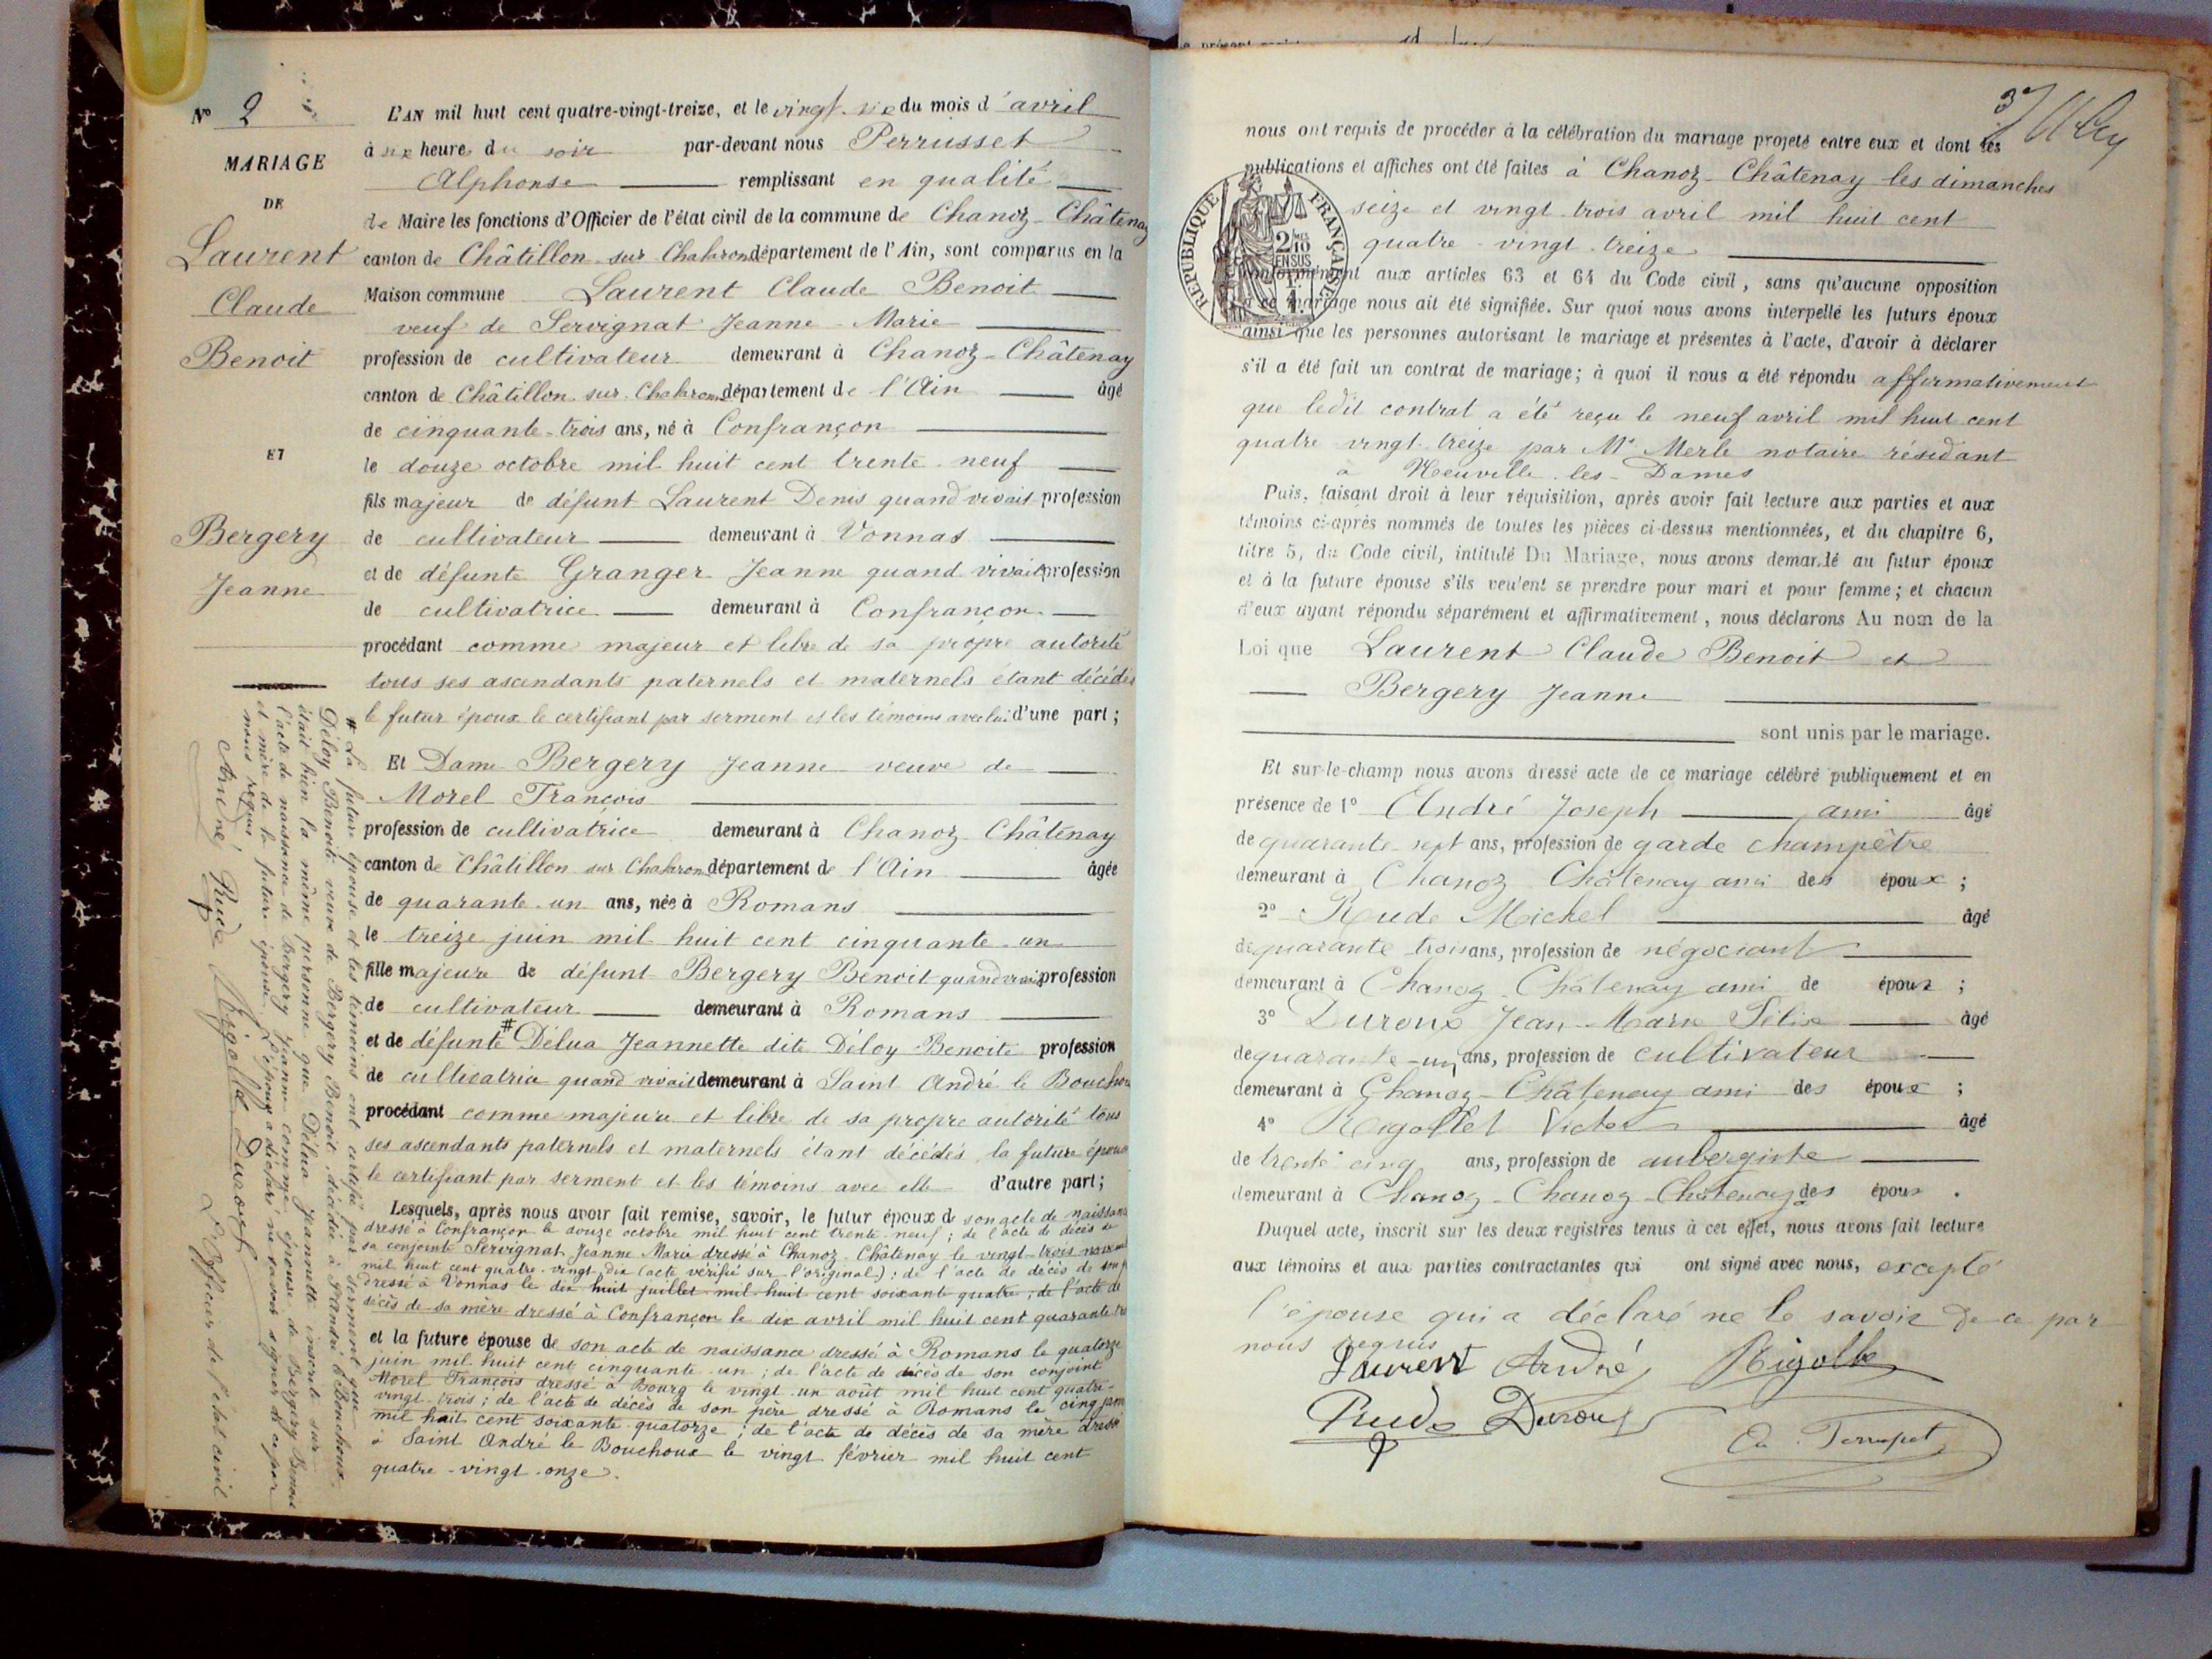 N° 2
MARIAGE
DE
Laurent
Claude
Benoit
ET
Bergery
Jeanne
L'AN mil huit cent quatre-vingt-treize, et le vingt-six du mois d'avril
à six heures du soir par-devant nous Perrusset
Alphonse remplissant en qualité
de Maire les fonctions d'Officier de l'état civil de la commune de Chanoz-Châtenay
canton de Châtillon-sur-Chalaronne département de l'Ain, sont comparus en la
Maison commune Laurent Claude Benoit
veuf de Servignat Jeanne-Marie
profession de cultivateur demeurant à Chanoz-Châtenay
canton de Châtillon-sur-Chalaronne département de l'Ain âgé
de cinquante-trois ans, né à Confrançon
le douze octobre mil huit cent trente-neuf
fils majeur de défunt Laurent Denis quand vivait profession
de cultivateur demeurant à Vonnas
et de défunte Granger Jeanne quand vivait profession
de cultivatrice demeurant à Confrançon
procédant comme majeur et libre de sa propre autorité
tous ses ascendants paternels et maternels étant décédés
le futur époux le certifiant par serment et les témoins avec lui d'une part ;
Et Dame Bergery Jeanne veuve de
Morel François
profession de cultivatrice demeurant à Chanoz-Châtenay
canton de Châtillon sur Chalaronne département de l'Ain âgée
de quarante-un ans, née à Romans
le treize juin mil huit cent cinquante-un
fille majeure de défunt Bergery Benoit quand vivait profession
de cultivateur demeurant à Romans
et de défunte # Délua Jeannette dite Déloy Benoite profession
de cultivatrice quand vivait demeurant à Saint André le Bouchoux
procédant comme majeure et libre de sa propre autorité tous
ses ascendants paternels et maternels étant décédés, la future épouse
le certifiant par serment et les témoins avec elle d'autre part ;
Lesquels, après nous avoir fait remise, savoir, le futur époux de son acte de naissance
dressé à Confrançon le douze octobre mil huit cent trente-neuf ; de l'acte de décès de
sa conjointe Servignat Jeanne Marie dressé à Chanoz-Châtenay le vingt-trois novembre
mil huit cent quatre-vingt-dix (acte vérifié sur l'original) ; de l'acte de décès de son père
dressé à Vonnas le dix-huit juillet mil huit cent soixante quatre ; de l'acte de
décès de sa mère dressé à Confrançon le dix avril mil huit cent quarante
et la future épouse de son acte de naissance dressé à Romans le quatorze
juin mil huit cent cinquante-un ; de l'acte de décès de son conjoint
Morel François dressé à Bourg le vingt-un août mil huit cent quatre-
vingt-trois ; de l'acte de décès de son père dressé à Romans le cinq
mil huit cent soixante-quatorze ; de l'acte de décès de sa mère dressé
à Saint André le Bouchoux le vingt février mil huit cent
quatre-vingt-onze.
# La future épouse et les témoins ont certifié par serment que
Déloy Benoite veuve de Bergery Benoit, décédée à St André le Bouchoux,
était bien la même personne que Délua Jeannette inscrite sur
l'acte de naissance de Bergery Jeanne comme épouse de Bergery Benoit
et mère de la future épouse. L'épouse a déclaré ne savoir signer de ce par
nous requis
André Rude Rigollet Duroux
L'Officier de l'état civil
37
nous ont requis de procéder à la célébration du mariage projeté entre eux et dont les
publications et affiches ont été faites à Chanoz-Châtenay les dimanches
seize et vingt-trois avril mil huit cent
quatre-vingt-treize
REPUBLIQUE FRANÇAISE
2/10 EN SUS
conformément aux articles 63 et 64 du Code civil, sans qu'aucune opposition
à ce mariage nous ait été signifiée. Sur quoi nous avons interpellé les futurs époux
ainsi que les personnes autorisant le mariage et présentes à l'acte, d'avoir à déclarer
s'il a été fait un contrat de mariage ; à quoi il nous a été répondu affirmativement
que ledit contrat a été reçu le neuf avril mil huit cent
quatre-vingt-treize par Me Merle notaire résidant
à Neuville-les-Dames
Puis, faisant droit à leur réquisition, après avoir fait lecture aux parties et aux
témoins ci-après nommés de toutes les pièces ci-dessus mentionnées, et du chapitre 6,
titre 5, du Code civil, intitulé Du Mariage, nous avons demandé au futur époux
et à la future épouse s'ils veulent se prendre pour mari et pour femme ; et chacun
d'eux ayant répondu séparément et affirmativement, nous déclarons Au nom de la
Loi que Laurent Claude Benoit et
Bergery Jeanne
sont unis par le mariage.
Et sur-le-champ nous avons dressé acte de ce mariage célébré publiquement et en
présence de 1° André Joseph ami âgé
de quarante-sept ans, profession de garde champêtre
demeurant à Chanoz Châtenay ami des époux ;
2° Rude Michel âgé
de quarante trois ans, profession de négociant
demeurant à Chanoz-Châtenay ami de époux ;
3° Duroux Jean-Marie Félix âgé
de quarante-un ans, profession de cultivateur
demeurant à Chanoz-Châtenay ami des époux ;
4° Rigollet Victor âgé
de trente cinq ans, profession de aubergiste
demeurant à Chanoz-Chanoz-Châtenay des époux.
Duquel acte, inscrit sur les deux registres tenus à cet effet, nous avons fait lecture
aux témoins et aux parties contractantes qui ont signé avec nous, excepté
l'épouse qui a déclaré ne le savoir de ce par
nous requis
Laurent André Rigollet
Rude Duroux
Perrusset